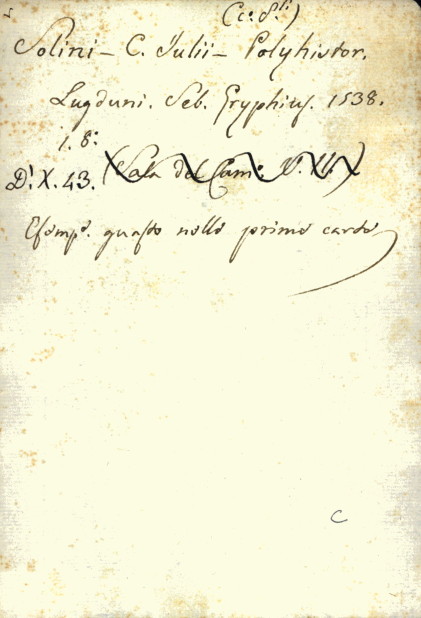 Solini – C. Julii – Polyhistor.
Lugduni. Seb. Gryphius. 1538.
1. 8:
D! X. 43. (Sala del Cam:
Esemp. guasto nelle prime carte
C